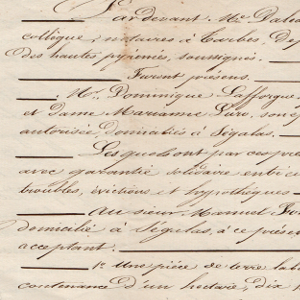 Par devant Me Dabe
collègue, notaires à Tarbes, Dép
des hautes pyrénées, soussignés.
Furent présens.
Mr. Dominique Lafforgue
et Dame Marianne
autorisée, domiciliés à Ségalas.
Lesquels ont par ces pré
avec garantie solidaire entr'e
troubles, évictions et hypothèques
au sieur Manuel
domicilié à Ségalas, à ce présen
acceptant.
1° Une pièce de terre lab
contenance d'un hectare, dix